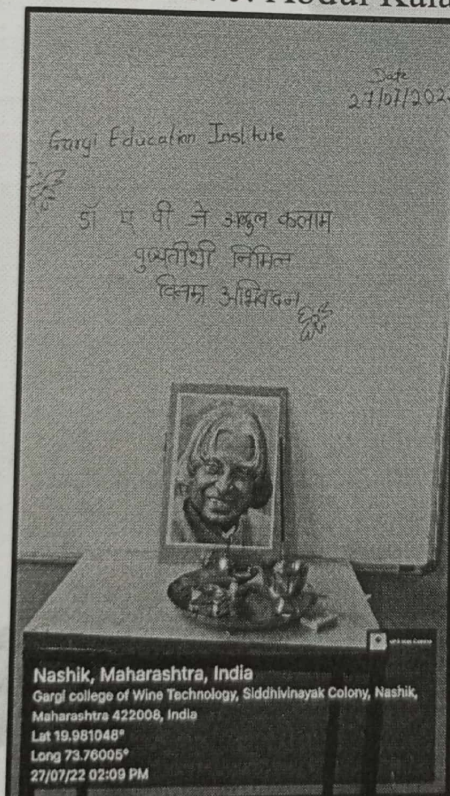 Abdul
Date
27/07/202
Gargi Education Institute
डॉ ए पी जे अब्दुल कलाम
पुण्यतीथी निमित्त
विनम्र अभिवादन
Nashik, Maharashtra, India
Gargi college of Wine Technology, Siddhivinayak Colony, Nashik,
Maharashtra 422008, India
Lat 19.981048°
Long 73.76005°
27/07/22 02:09 PM